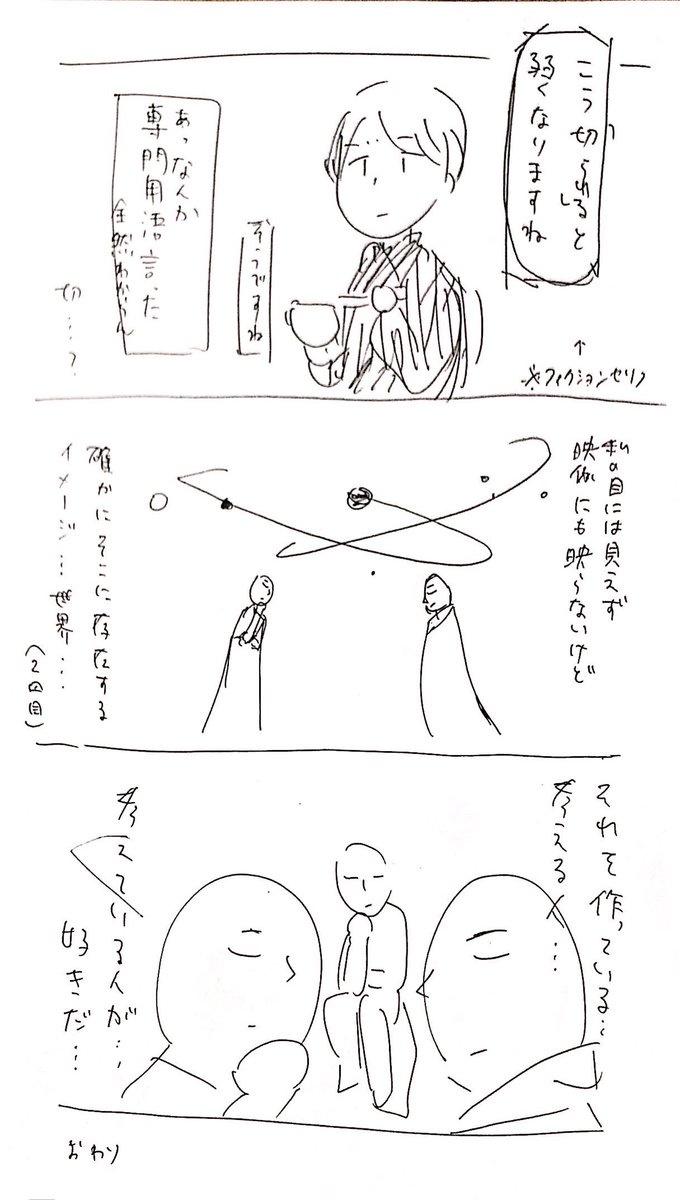 こう切られると
弱くなりますね
↑
※フィクションセリフ
そうですね
あっなんか
専門用語言った
全然わからん
切…?
私の目には見えず
映像にも映らないけど
確かにそこに存在する
イメージ…世界…
(2回目)
それを作っている…
考える人…
考えている人が…
好きだ…
おわり